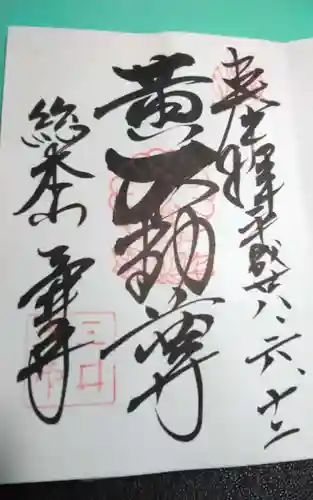 奉拝 平成廿八、六、十二
黄不動尊
総本山 三井寺